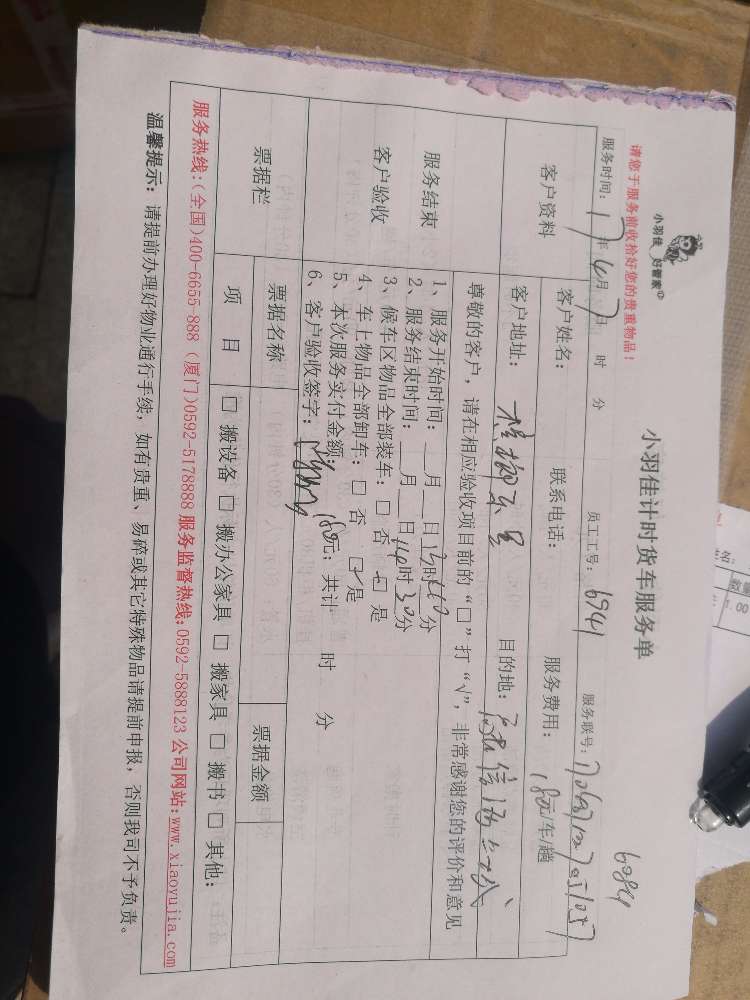 小羽佳 好管家
请您于服务前收拾好您的贵重物品！
小羽佳计时货车服务单
6984
服务时间：17年4月7日 时 分 员工工号：6941 服务联号：
客户资料
客户姓名： 联系电话： 服务费用：180元/车/趟
客户地址： 目的地：
尊敬的客户，请在相应验收项目前的“□”打“√”，非常感谢您的评价和意见
服务结束
客户验收
1、服务开始时间：__月__日13时00分
2、服务结束时间：__月__日14时30分
3、候车区物品全部装车：□ 否 □ 是
4、车上物品全部卸车：□ 否 □ 是
5、本次服务实付金额：180元；共计 时 分
6、客户验收签字：
票据栏
票据名称 票据金额
项 目 □ 搬设备 □ 搬办公家具 □ 搬家具 □ 搬书 □ 其他：
服务热线：(全国)400-6655-888 (厦门)0592-5178888 服务监督热线：0592-5888123 公司网站：www.xiaoyujia.com
温馨提示：请提前办理好物业通行手续，如有贵重、易碎或其它特殊物品请提前申报，否则我司不予负责。
数量
1.00